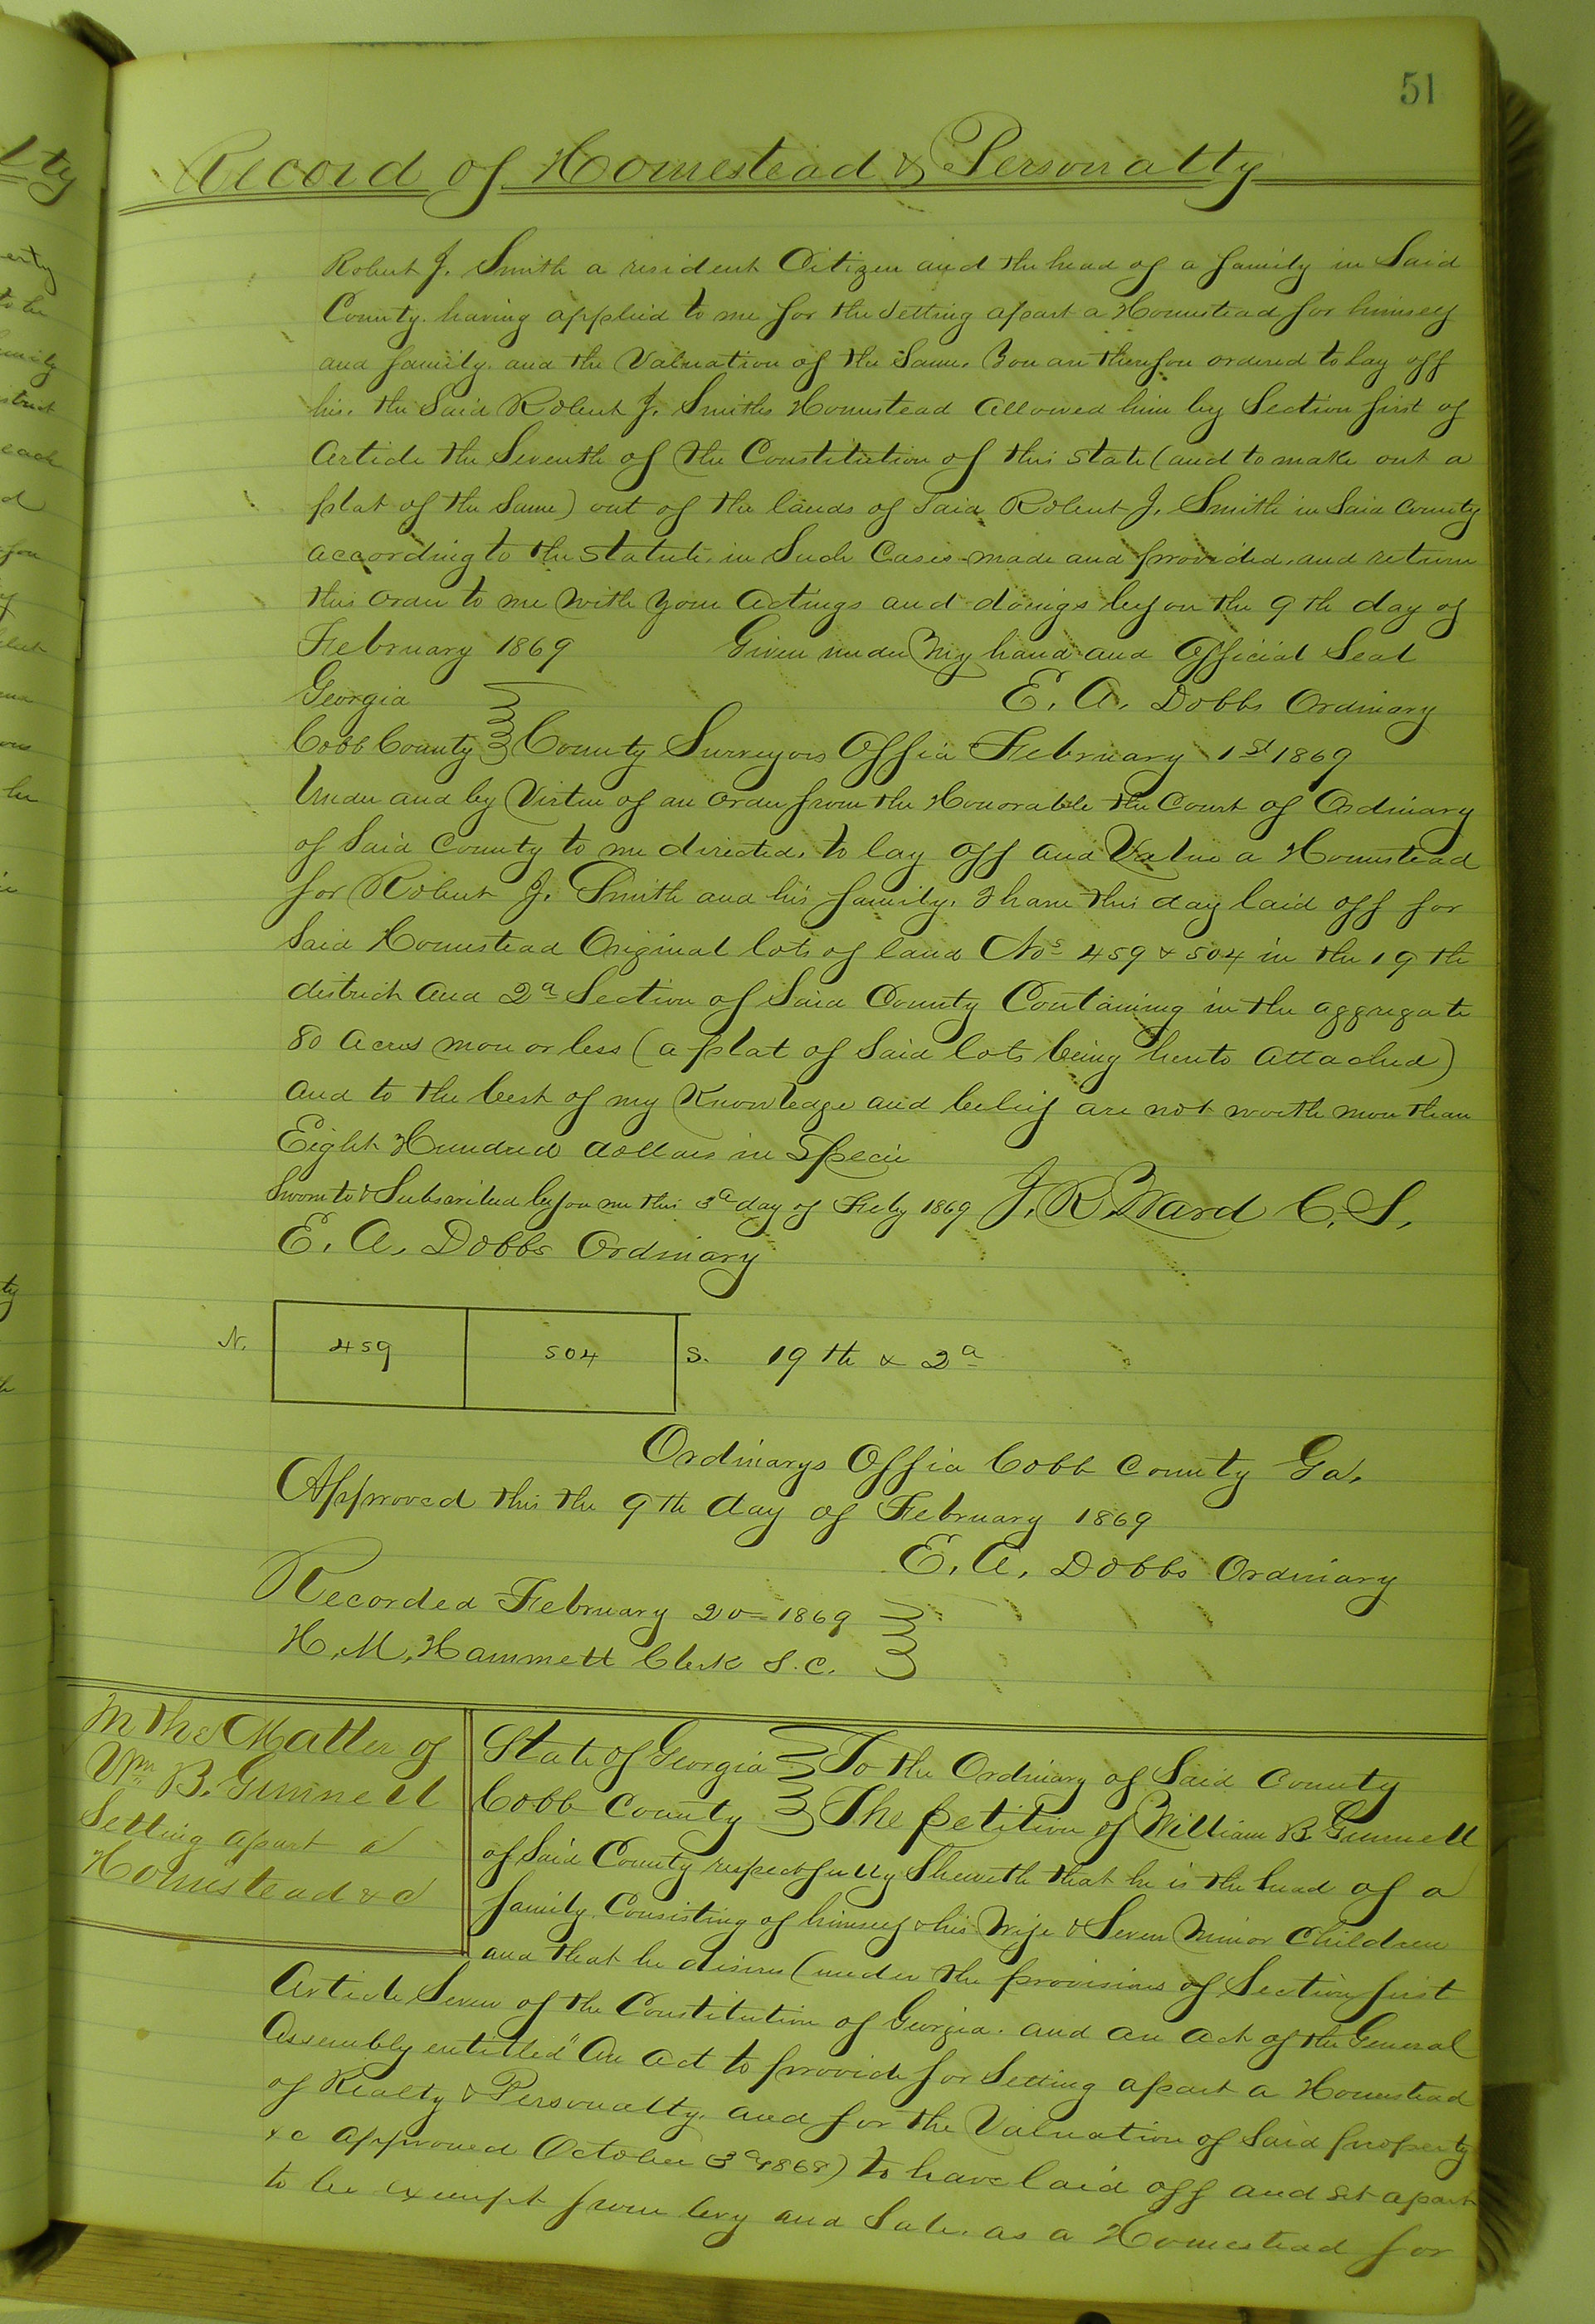 51
Record of Homestead & Personalty
Robert J. Smith a resident Citizen and the head of a family in Said
County. having applied to me for the Setting apart a Homestead for himself
and family. and the Valuation of the Same. You are therefore ordered to lay off
his. the Said Robert J. Smiths Homestead allowed him by Section first of
Article the Seventh of the Constitution of this State (and to make out a
plat of the Same) out of the lands of Said Robert J. Smith in Said County
according to the Statute. in Such Cases made and provided. and return
this order to me with your actings and doings before the 9th day of
February 1869 Given under my hand and Official Seal
Georgia E. A. Dobbs Ordinary
Cobb County County Surveyors Office February 1st 1869
Under and by Virtue of an order from the Honorable the Court of Ordinary
of Said County to me directed. to lay off and Value a Homestead
for Robert J. Smith and his family. I have this day laid off for
Said Homestead Original lots of land Nos 459 & 504 in the 19th
district and 2d Section of Said County Containing in the aggregate
80 Acres more or less (a plat of Said lots being hereto attached)
and to the best of my Knowledge and belief are not worth more than
Eight Hundred dollars in Specie
Sworn to & Subscribed before me this 3d day of Feby 1869 J. R. Ward C. S.
E. A. Dobbs Ordinary
N. 459 504 S. 19th & 2d
Ordinarys Office Cobb County Ga.
Approved this the 9th day of February 1869
E. A. Dobbs Ordinary
Recorded February 20 1869
H. M. Hammett Clerk S. C.
In the Matter of
Wm B. Gunnell
Setting apart a
Homestead &c
State of Georgia To the Ordinary of Said County
Cobb County The petition of William B. Gunnell
of Said County respectfully Sheweth that he is the head of a
family. Consisting of himself & his Wife & Seven Minor Children
and that he desires (under the provisions of Section first
Article Seven of the Constitution of Georgia. and an act of the General
Assembly entitled "An act to provide for Setting apart a Homestead
of Realty & Personalty. and for the Valuation of Said property
&c approved October 3d 1868) to have laid off and Set apart
to be exempt from levy and Sale. as a Homestead for